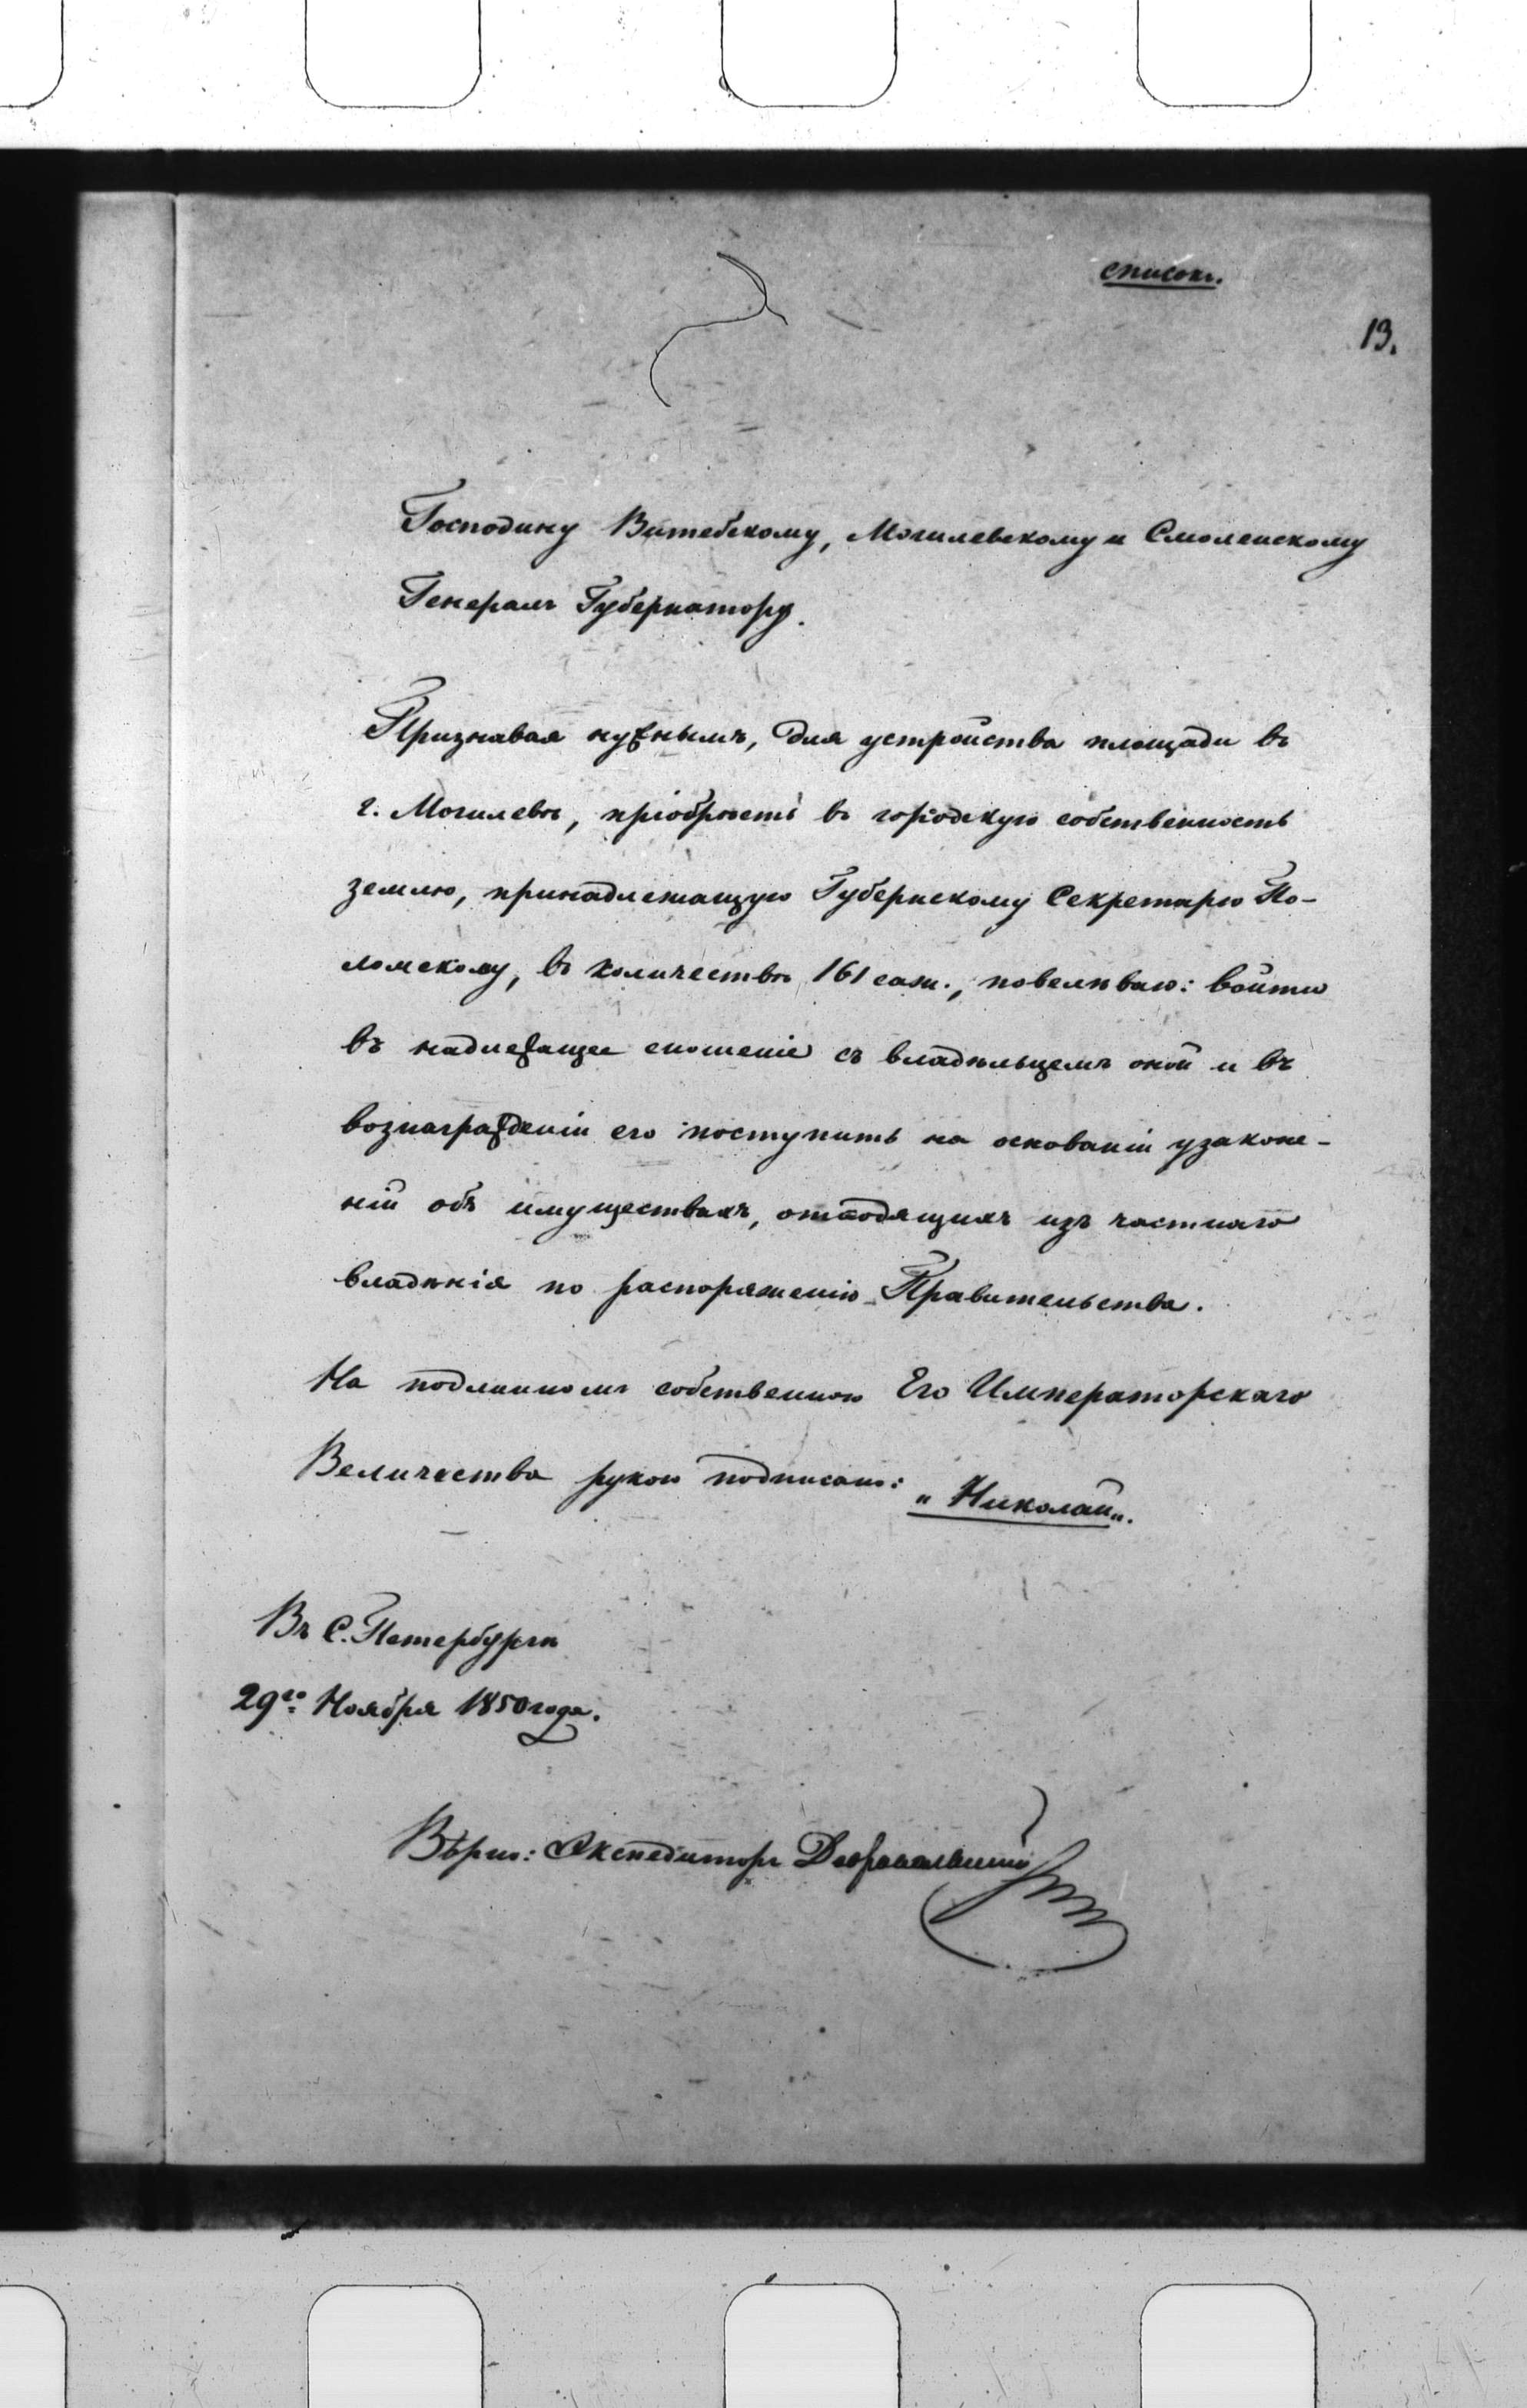 списокъ.
13.
Господину Витебскому, Могилевскому и Смоленскому
Генералъ Губернатору.
Признавая нужнымъ, для устройства площади въ
г. Могилевѣ, пріобрѣсть въ городскую собственность
землю, принадлежащую Губернскому Секретарю По-
ломскому, въ количествѣ 161 саж., повелѣваю: войти
въ надлежащее сношеніе съ владѣльцемъ оной и въ
вознагражденіи его поступить на основаніи узаконе-
ній объ имуществахъ, отходящихъ изъ частнаго
владѣнія по распоряженію Правительства.
На подлинномъ собственною Его Императорскаго
Величества рукою подписано: „Николай„.
Въ С. Петербургѣ
29го Ноября 1850 года.
Вѣрно: Экспедиторъ